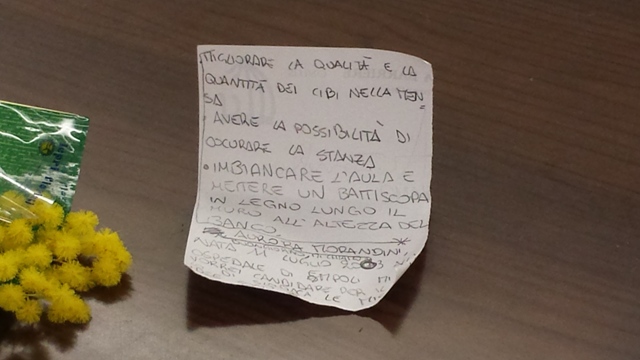 MIGLIORARE LA QUALITÀ E LA
QUANTITÀ DEI CIBI NELLA MEN=
SA
AVERE LA POSSIBILITÀ DI
COCURARE LA STANZA
• IMBIANCARE L'AULA E
METTERE UN BATTISCOPA
IN LEGNO LUNGO IL
MURO ALL'ALTEZZA DEL
BANCO.
AURORA MORANDINI
NATA 11 LUGLIO
OSPEDALE DI EMPOLI MI
VORREI CANDIDARE PER
LE